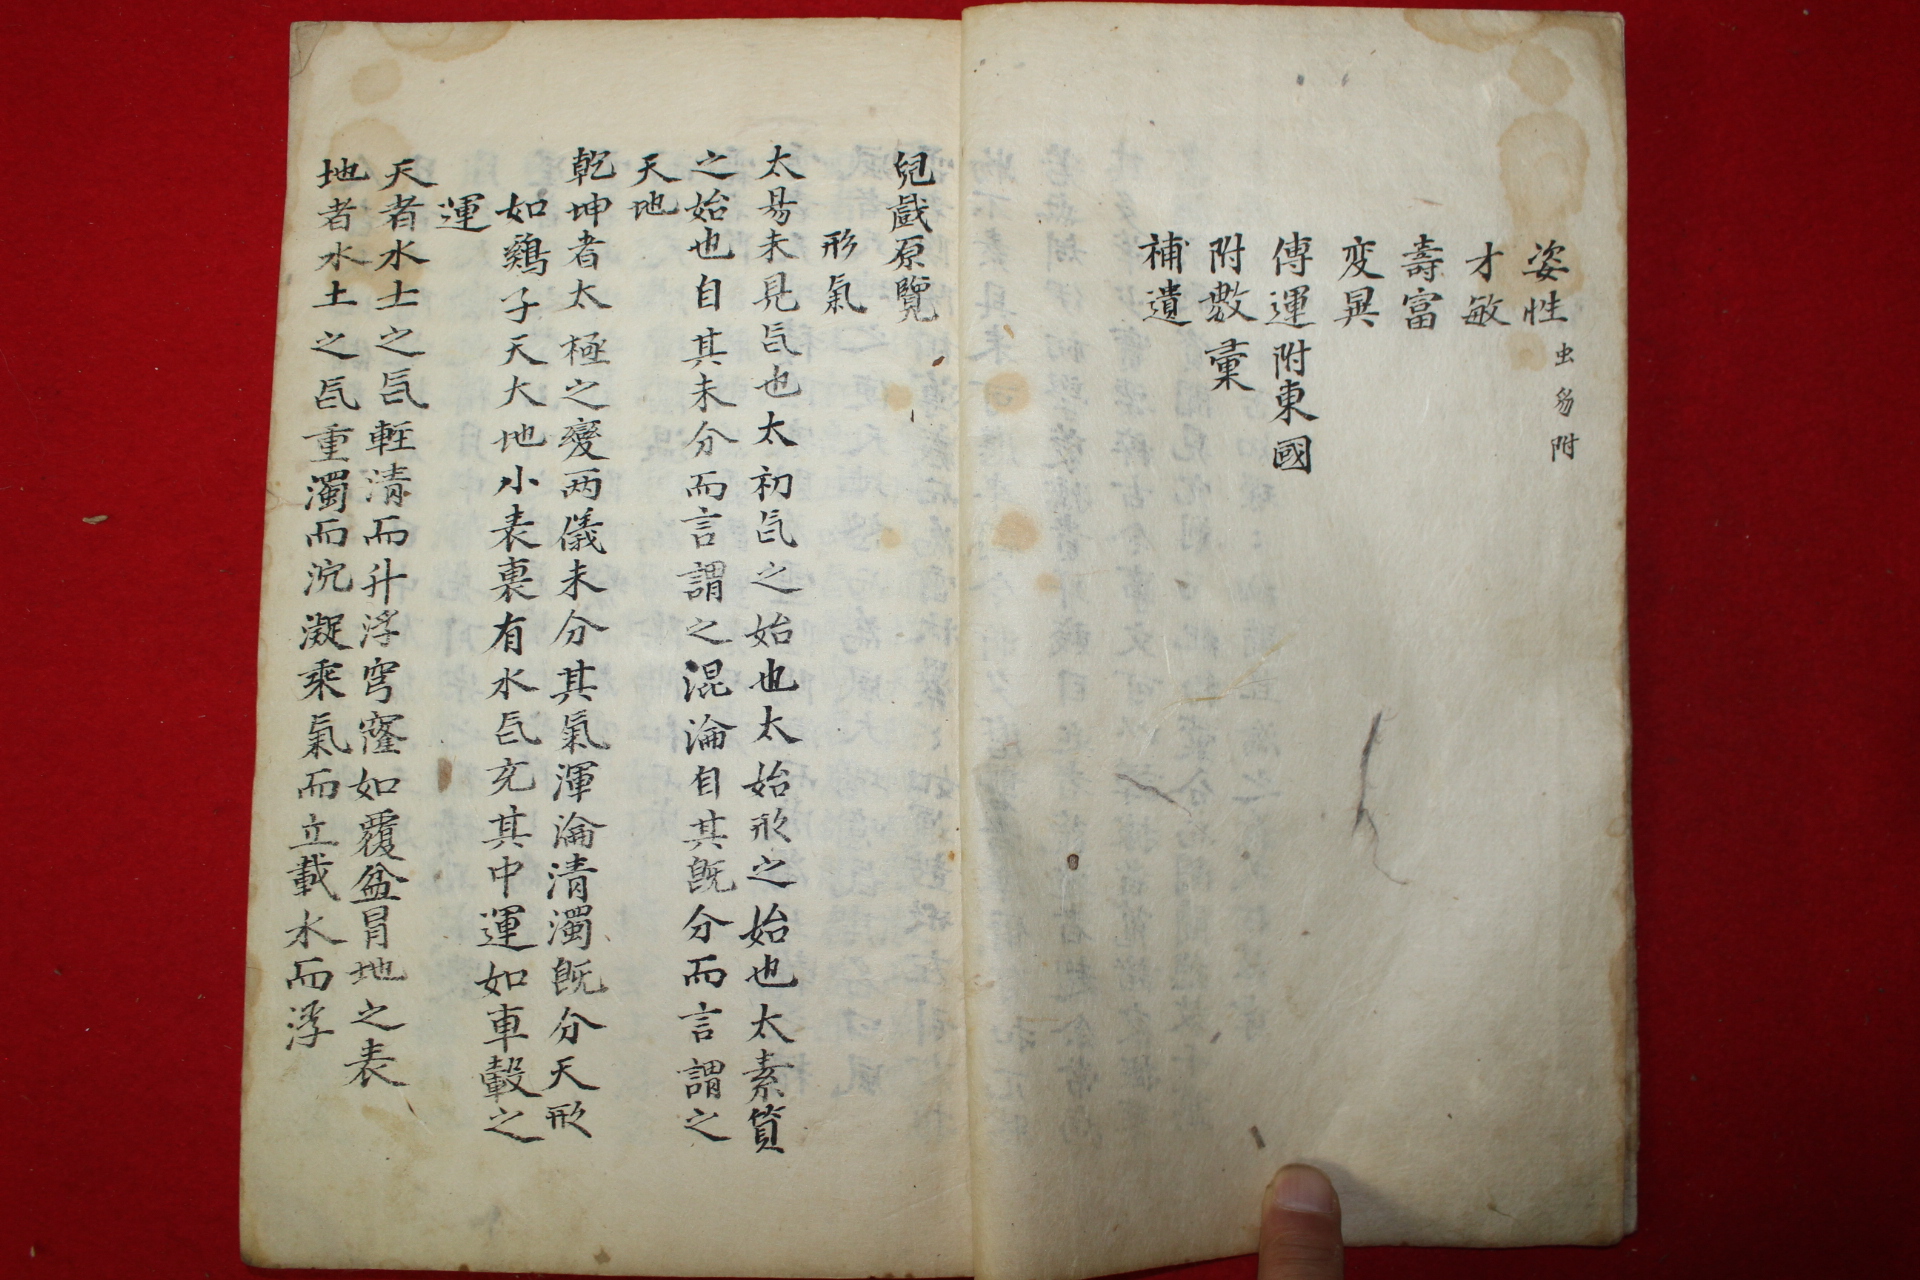 姿性 虫豸附
才敏
壽富
变異
傳運附東國
附敷彙
補遺
兒戱原覽
形氣
太易未見氕也太初氕之始也太始形之始也太素質
之始也自其未分而言謂之混淪自其旣分而言謂之
天地
乾坤者太極之變两儀未分其氣渾淪清濁旣分天形
如鷄子天大地小表裏有水氕充其中運如車轂之
運
天者水土之氕輕清而升浮穹窿如覆盆冐地之表
地者水土之氕重濁而沉凝乘氣而立載水而浮